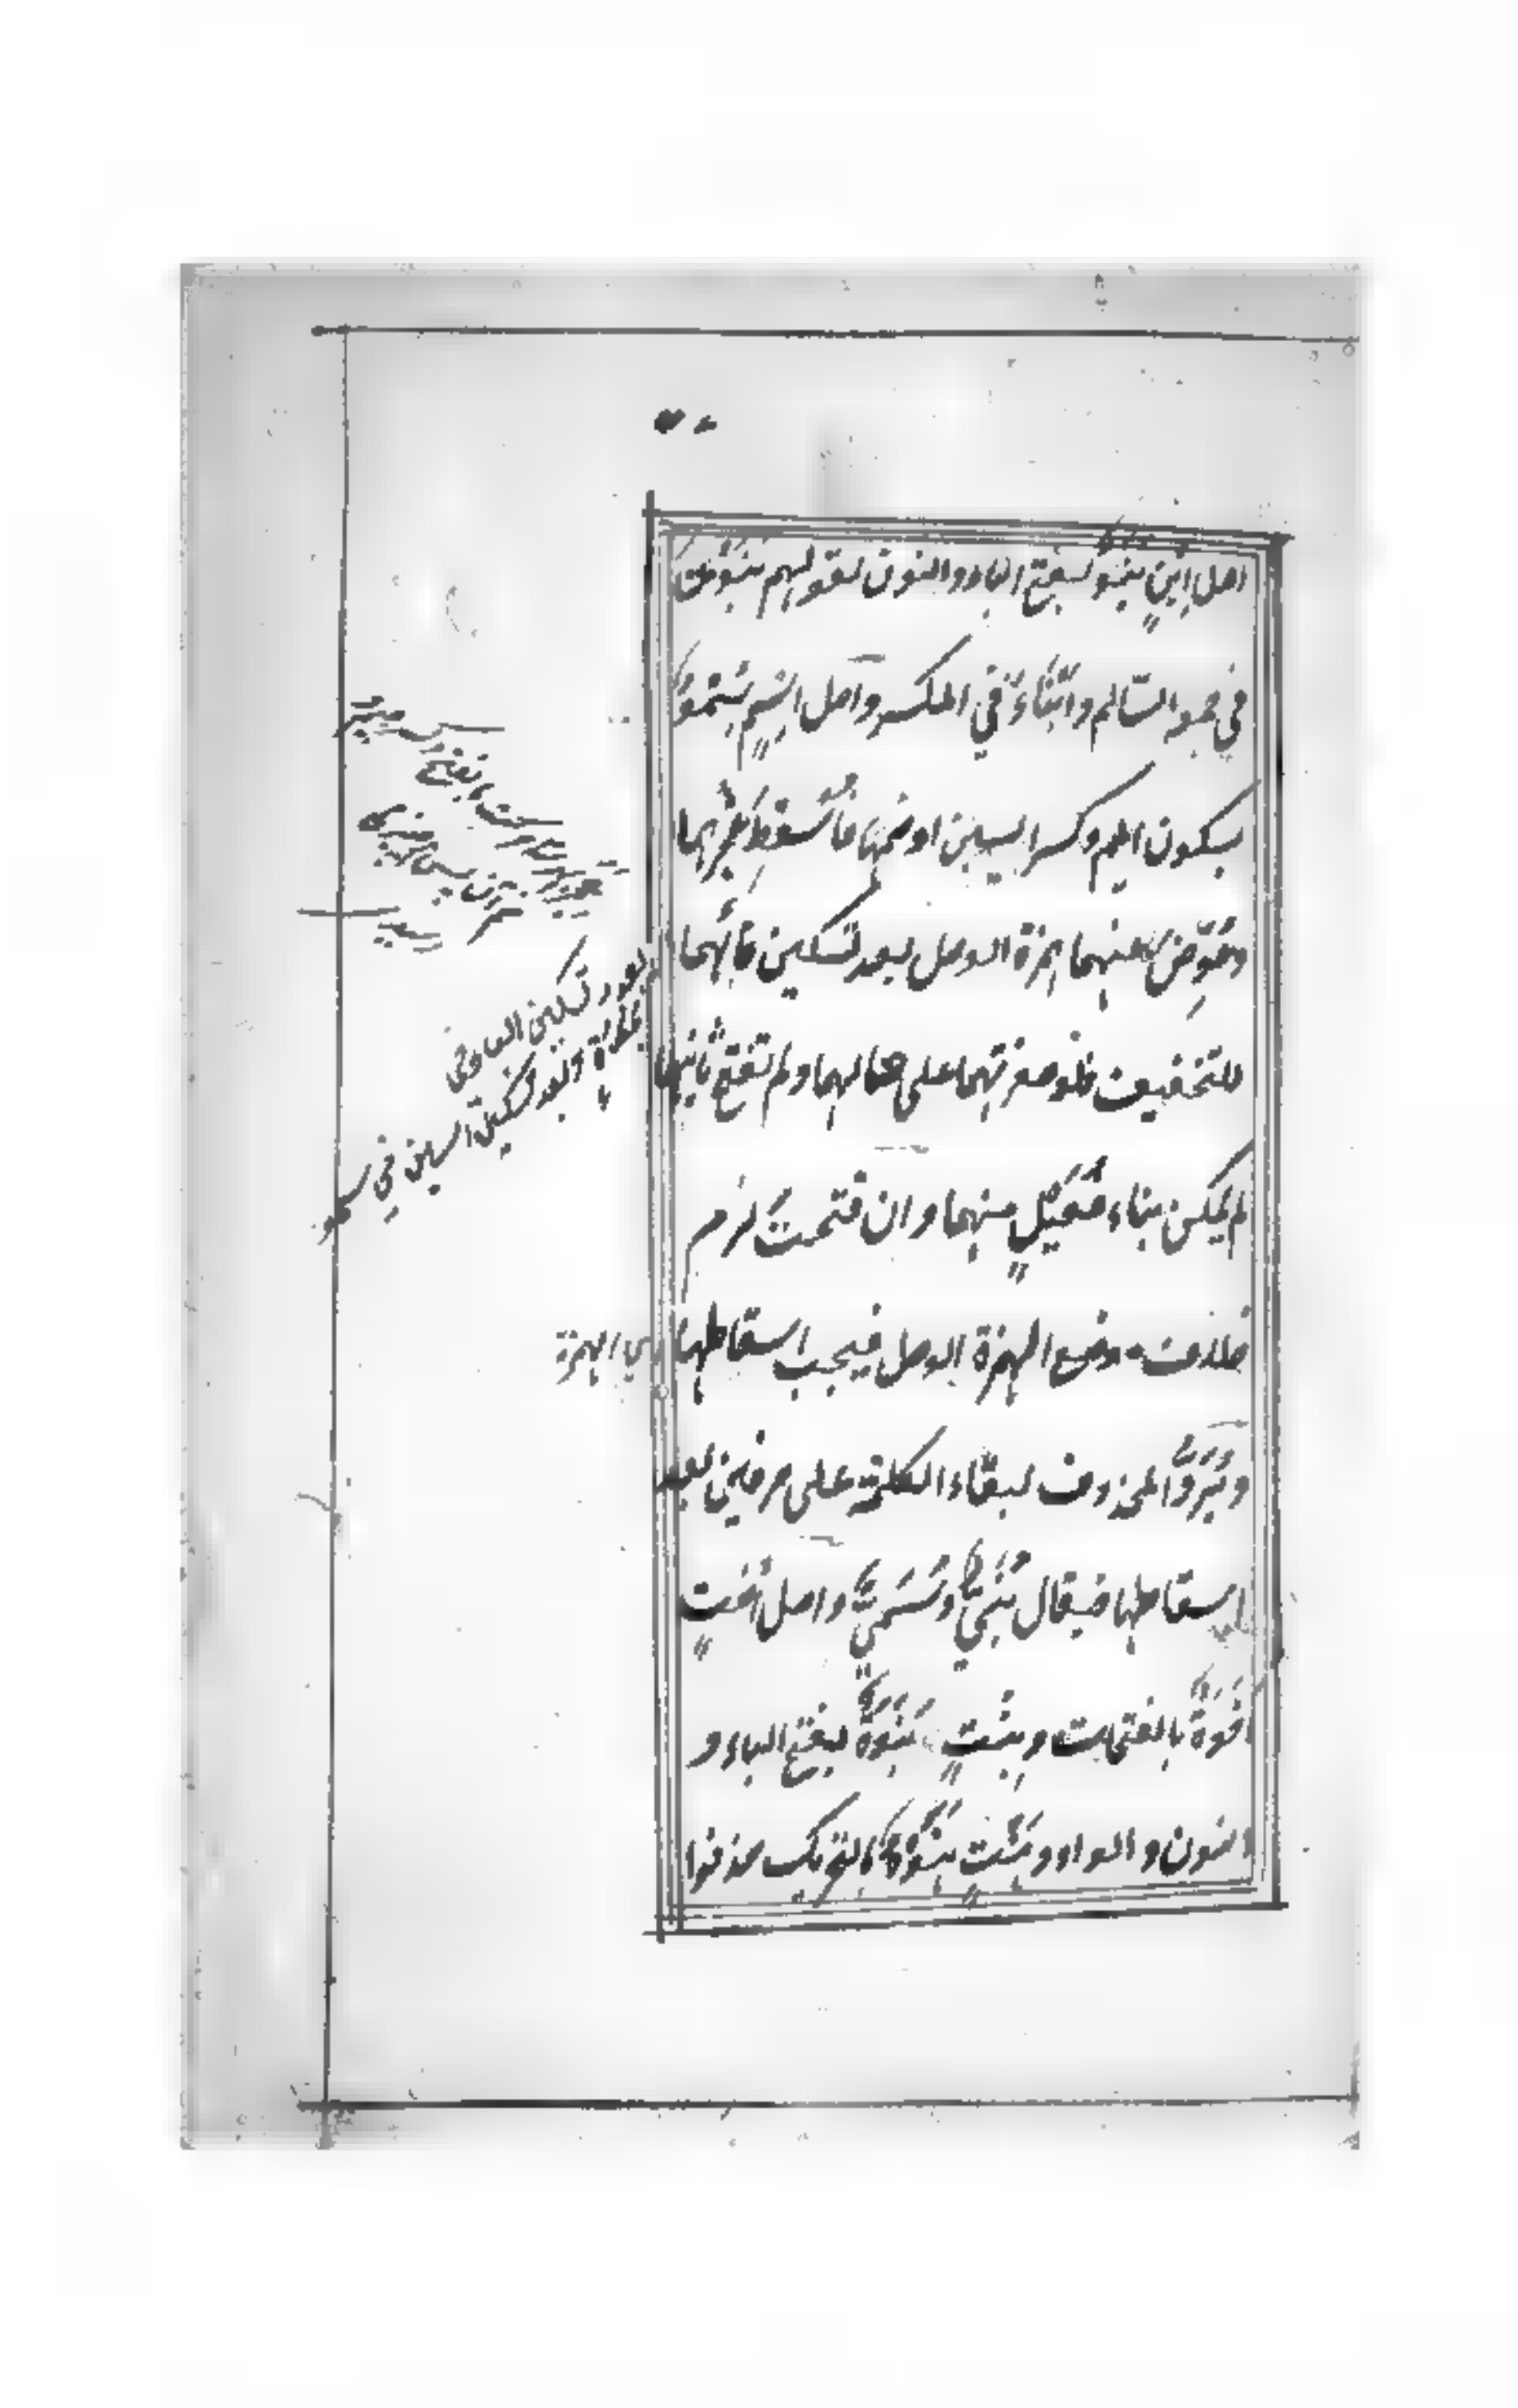 اصل اِبْنٍ بَنَوٌ بفتح الباء والنون لقولهم بَنُوْنَ
في جمع السّالم واَبْنَاءٌ في المكسر واصل اِسْمٍ سِمْوٌ
بسكون الميم وكسر السين او ضمها فأُسْقِطَ عجزهما
وعُوِّضَ عنهما همزة الوصل بعد تسكين فائهما
للتخفيف فلو صغرتهما على حالهما ولم تفتح ثانيهما
لم يمكن بناء فُعَيْلٍ منهما وان فتحتَ لزم
خلاف وضع الهمزة الوصل فيجب اسقاطها
اي الهمزة
ويُرَدُّ المحذوف لبقاء الكلمة على حرفين بعد
اسقاطها فيقال بُنَيٌّ وسُمَيٌّ واصل اُخْتٍ
اَخَوَةٌ بالفتحات وبِنْتٍ بَنَوَةٌ بفتح الباء و
النون والواو وهَنْتٍ هَنَوَةٌ بالتحريك حذفوا
بعد تسكين الفاء في
وبعد تسكين السين في سمو